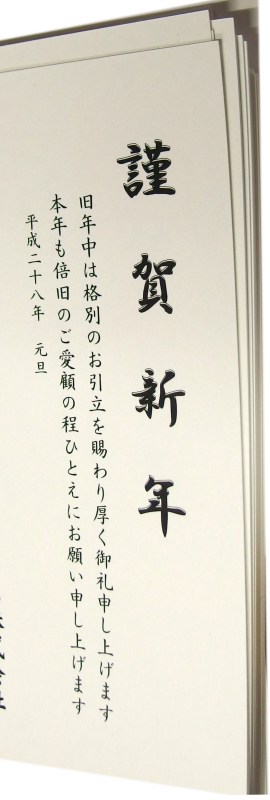 謹賀新年
旧年中は格別のお引立を賜わり厚く御礼申し上げます
本年も倍旧のご愛顧の程ひとえにお願い申し上げます
平成二十八年 元旦
株式会社